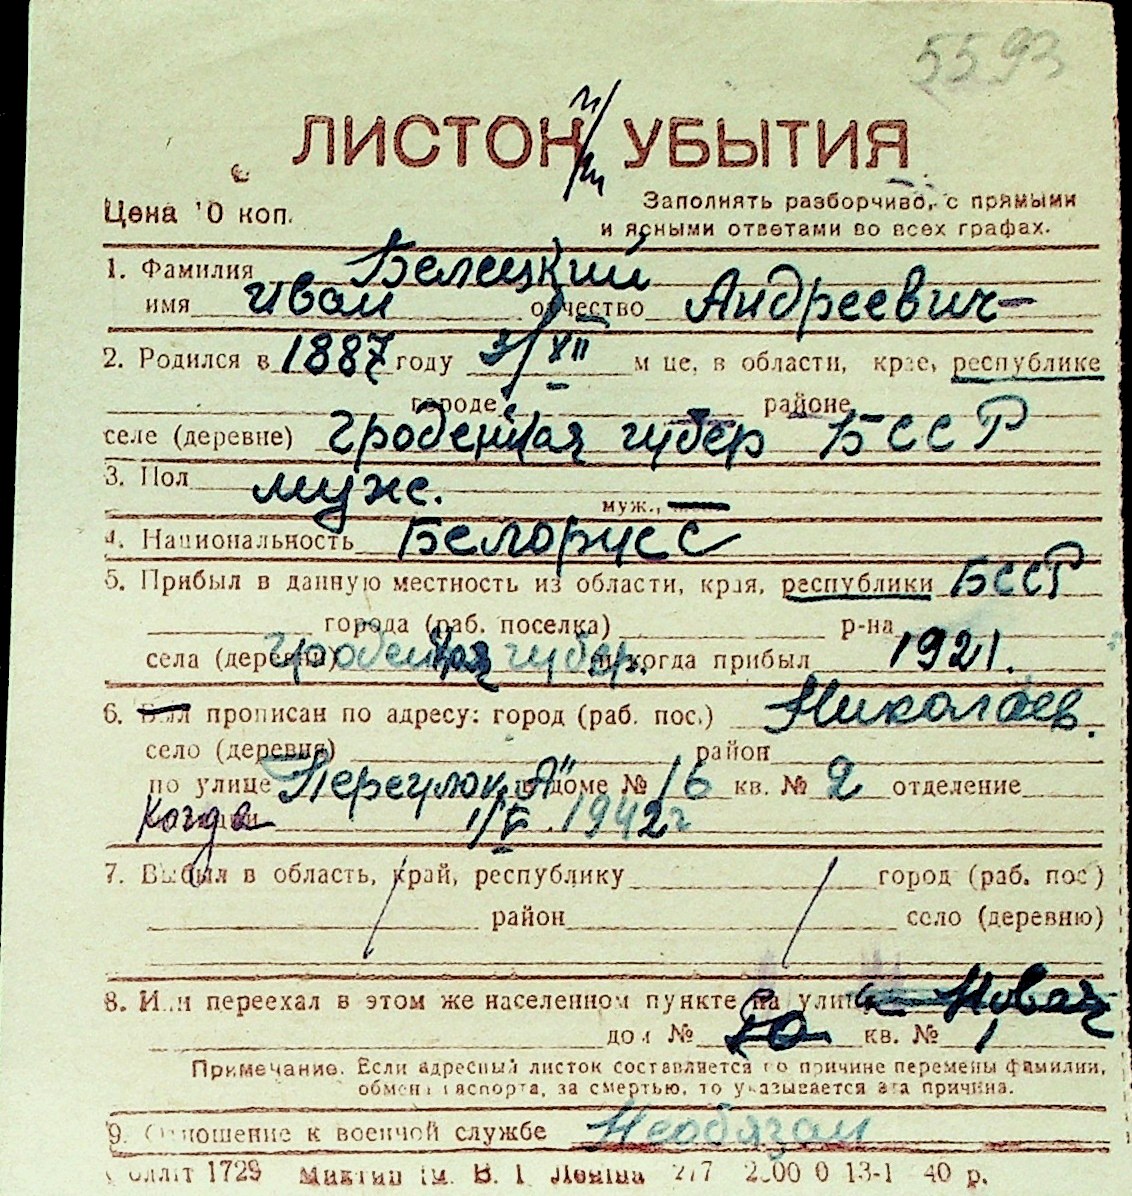 5593
ЛИСТОК УБЫТИЯ
Цена 10 коп.
Заполнять разборчиво, с прямыми
и ясными ответами во всех графах.
1. Фамилия Белецкий
имя Иван отчество Андреевич
2. Родился в 1887 году 3/XII м це, в области, крае, республике
городе районе
селе (деревне) Гроденская губер БССР
3. Пол муж. муж.,
4. Национальность Белорусс
5. Прибыл в данную местность из области, края, республики БССР
города (раб. поселка) р-на
села (деревни) Гроденская губер. и когда прибыл 1921.
6. Был прописан по адресу: город (раб. пос.) Николаев.
село (деревня) район
по улице Переулок „А" в доме № 16 кв. № 2 отделение
Когда 1/V 1942 г
7. Выбыл в область, край, республику город (раб. пос)
район село (деревню)
8. Или переехал в этом же населенном пункте на улицу Новая
дом № 2а кв. № 1
Примечание. Если адресный листок составляется по причине перемены фамилии,
обмена паспорта, за смертью, то указывается эта причина.
9. Отношение к военной службе Необязан
1729 Ім. В. І. Леніна 40 р.